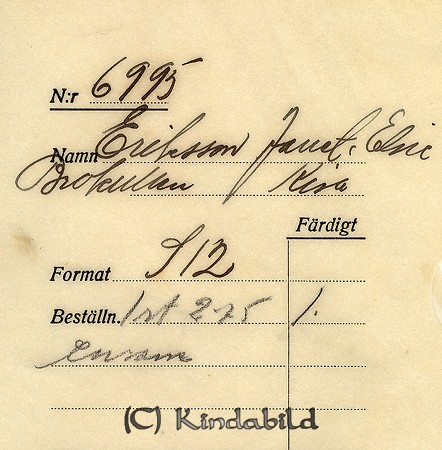 N:r 6995
Namn Eriksson Janet, Elsie
Brokullen Kisa
Färdigt
Format S 12
Beställn. 1 st 2.75 1.
ensam
(C) Kindabild